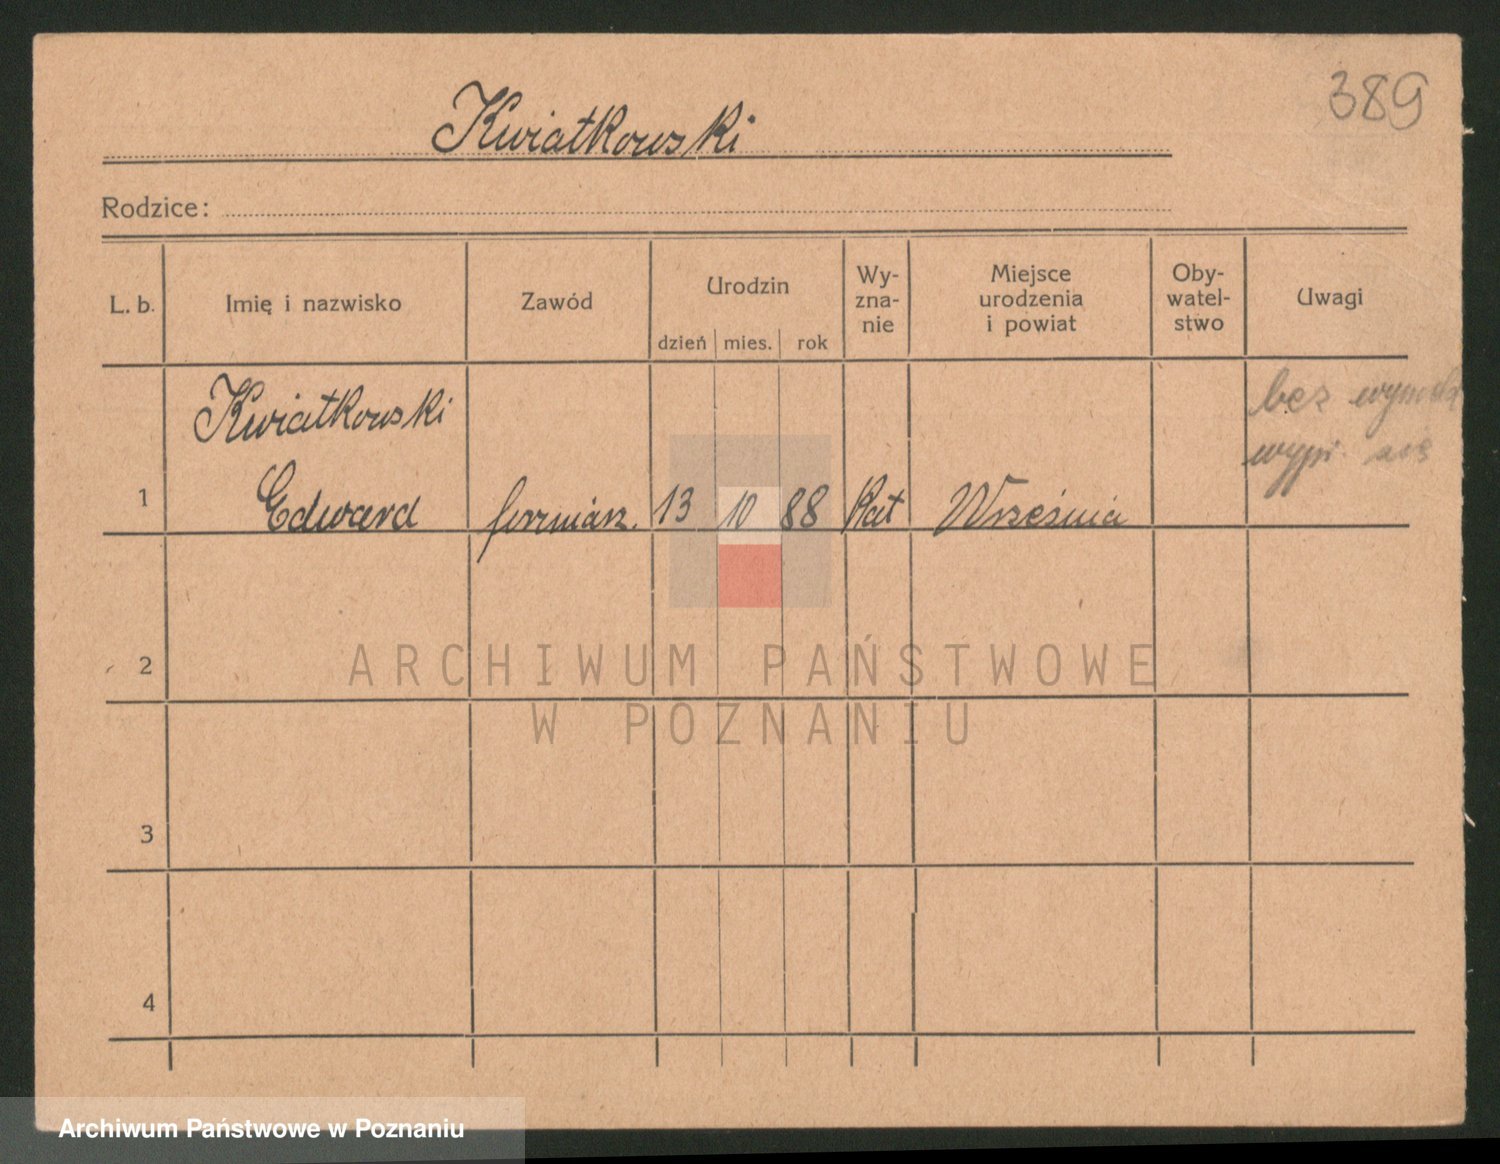 389
Kwiatkowski
Rodzice:
L. b.
Imię i nazwisko
Zawód
Urodzin
dzień mies. rok
Wy-
zna-
nie
Miejsce
urodzenia
i powiat
Oby-
watel-
stwo
Uwagi
Kwiatkowski
bez
1 Edward 13 10 88 Kat Września
2
3
4
ARCHIWUM PAŃSTWOWE
W POZNANIU
Archiwum Państwowe w Poznaniu